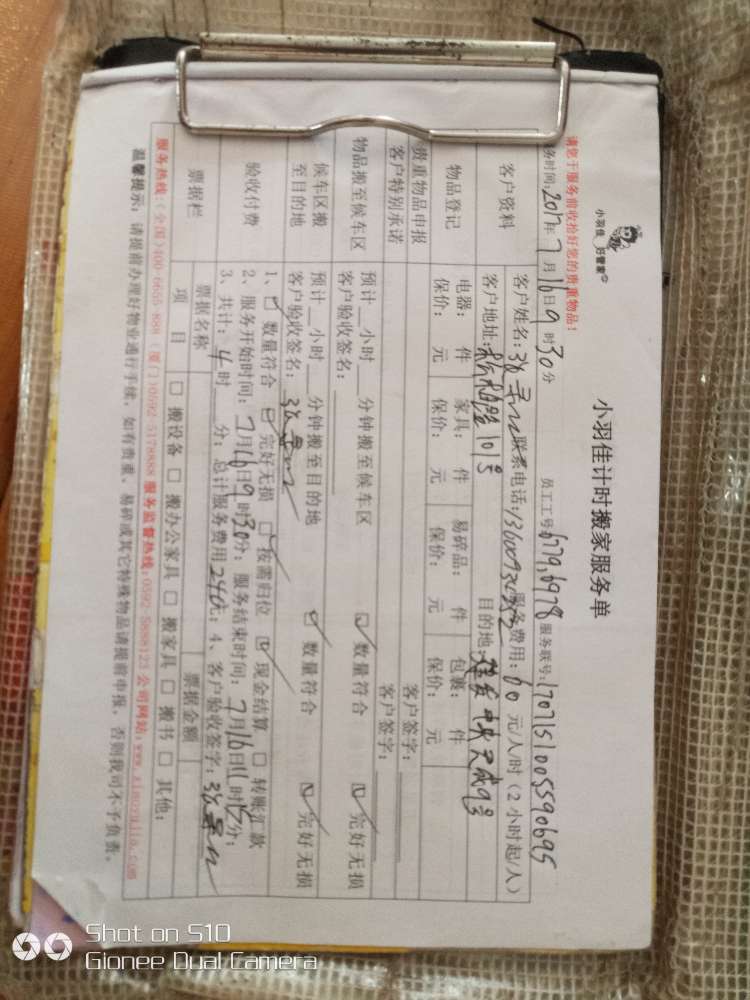 小羽佳 好管家
小羽佳计时搬家服务单
请您于服务前收拾好您的贵重物品!
务时间:2017年7月16日9时30分 员工工号:6779,6978 服务联号:1707151005590695
客户资料 客户姓名: 联系电话: 服务费用:60元/人/时(2小时起/人)
客户地址: 101号 目的地: 天成9号
物品登记 电器: 件 家具: 件 易碎品: 件 包裹: 件
保价: 元 保价: 元 保价: 元 保价: 元
贵重物品申报 客户签字:
客户特别承诺 客户签字:
物品搬至候车区 预计__小时__分钟搬至候车区 ☑数量符合 ☑完好无损
客户验收签名:
候车区搬至目的地 预计__小时__分钟搬至目的地 ☑数量符合 ☑完好无损
客户验收签名:
验收付费 1、☑数量符合 ☑完好无损 ☑按需归位 ☑现金结算 □转账汇款
2、服务开始时间:7月16日9时30分;服务结束时间:7月16日11时15分;
3、共计:4时__分;总计服务费用240元;4、客户验收签字:
票据栏 票据名称 票据金额
项目 □搬设备 □搬办公家具 □搬家具 □搬书 □其他:
服务热线:(全国)400-6655-888 (厦门)0592-5178888 服务监督热线:0592-5888123 公司网站:www.xiaoyujia.com
温馨提示:请提前办理好物业通行手续,如有贵重、易碎或其它特殊物品请提前申报,否则我司不予负责。
Shot on S10
Gionee Dual Camera